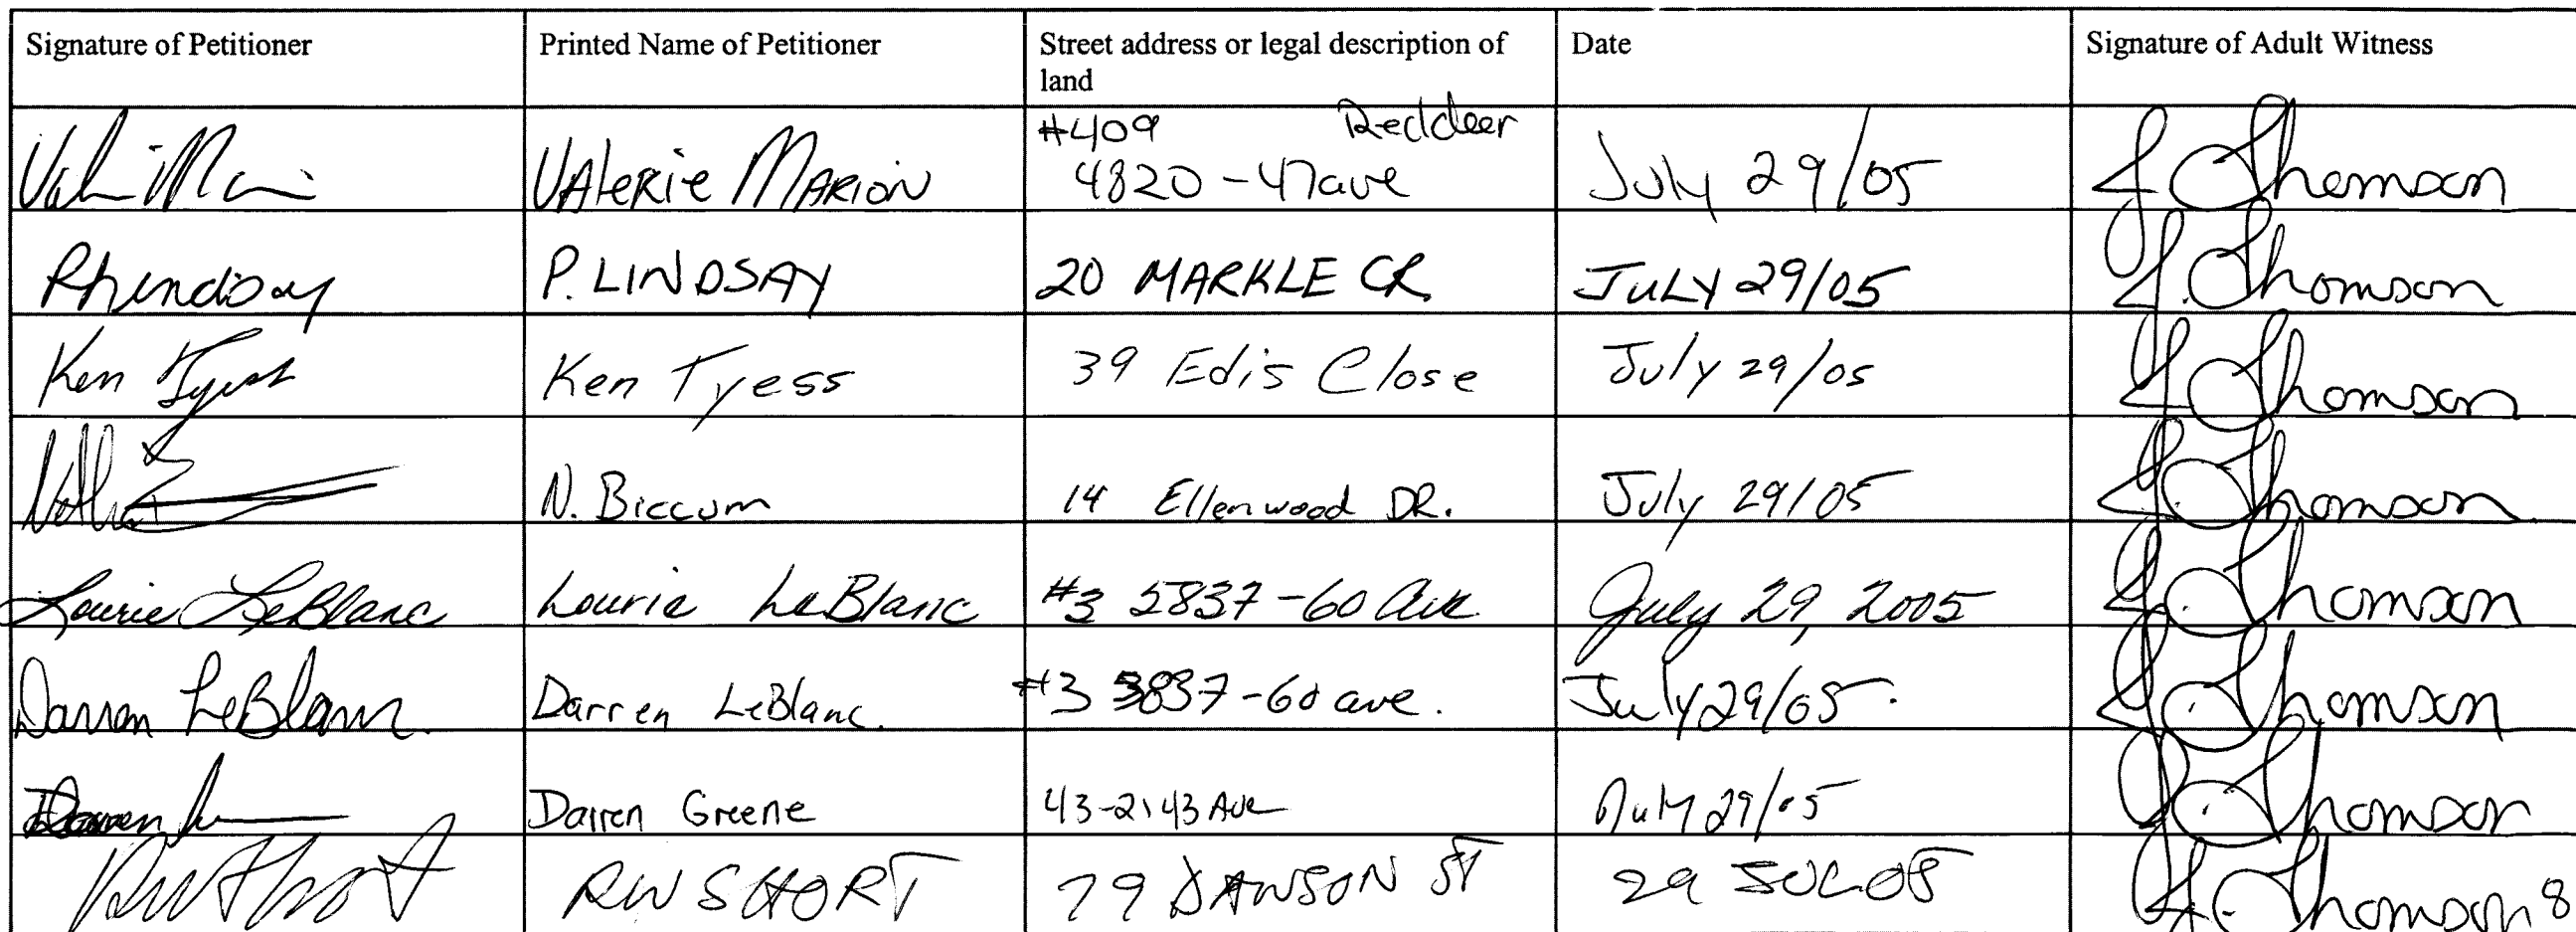 Signature of Petitioner Printed Name of Petitioner Street address or legal description of Date Signature of Adult Witness
land
#409 Reddeer
VALERIE MARION 4820-47ave July 29/05 J Thomson
PLindsay P. LINDSAY 20 MARKLE CR. JULY 29/05 J. Thomson
Ken Tyess Ken Tyess 39 Edis Close July 29/05 J. Thomson
N. Biccum 14 Ellenwood DR. July 29/05 J. Thomson
Lourie LeBlanc Lourie LeBlanc #3 5837-60 Ave July 29, 2005 J. Thomson
Darren LeBlanc. Darren LeBlanc. #3 5837-60 ave. July 29/05. J. Thomson
Darren Darren Greene 43-2143 Ave July 29/05 J. Thomson
RW Short RW SHORT 79 DAWSON ST 29 JUL 05 J. Thomson 8